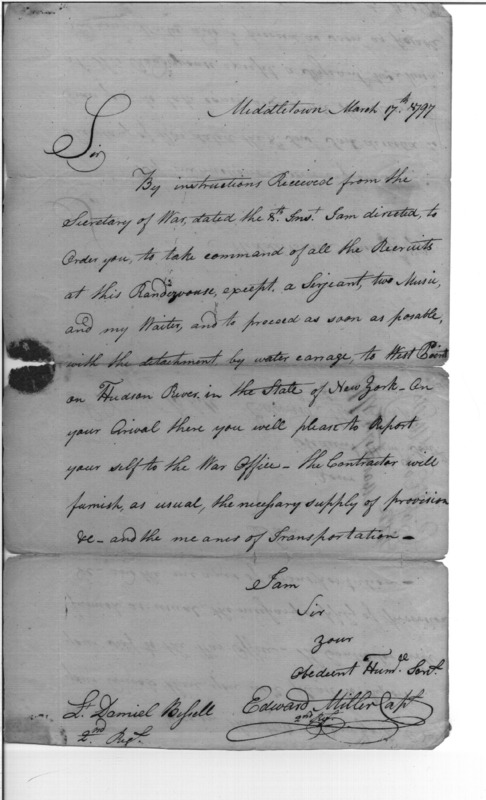 Middletown March 17th. 1797
Sir
By instructions Received from the
Secretary of War, dated the 8th. Inst. I am directed, to
Order you, to take command of all the Recruits
at this Randezvouse, except, a Serjeant, two Music,
and my Waiter, and to proceed as soon as posable,
with the detachment, by water carrage, to West Point
on Hudson River. in the State of New York - On
your Arival there you will please to Report
your self to the War Office - the Contractor will
furnish, as usual, the necessary supply of provision
&c - and the meanes of Transportation -
I am
Sir
your
Obedient Humle. Servt.
Edward Miller Capt
2nd Regt
Lt. Daniel Bissell
2nd. Regt.